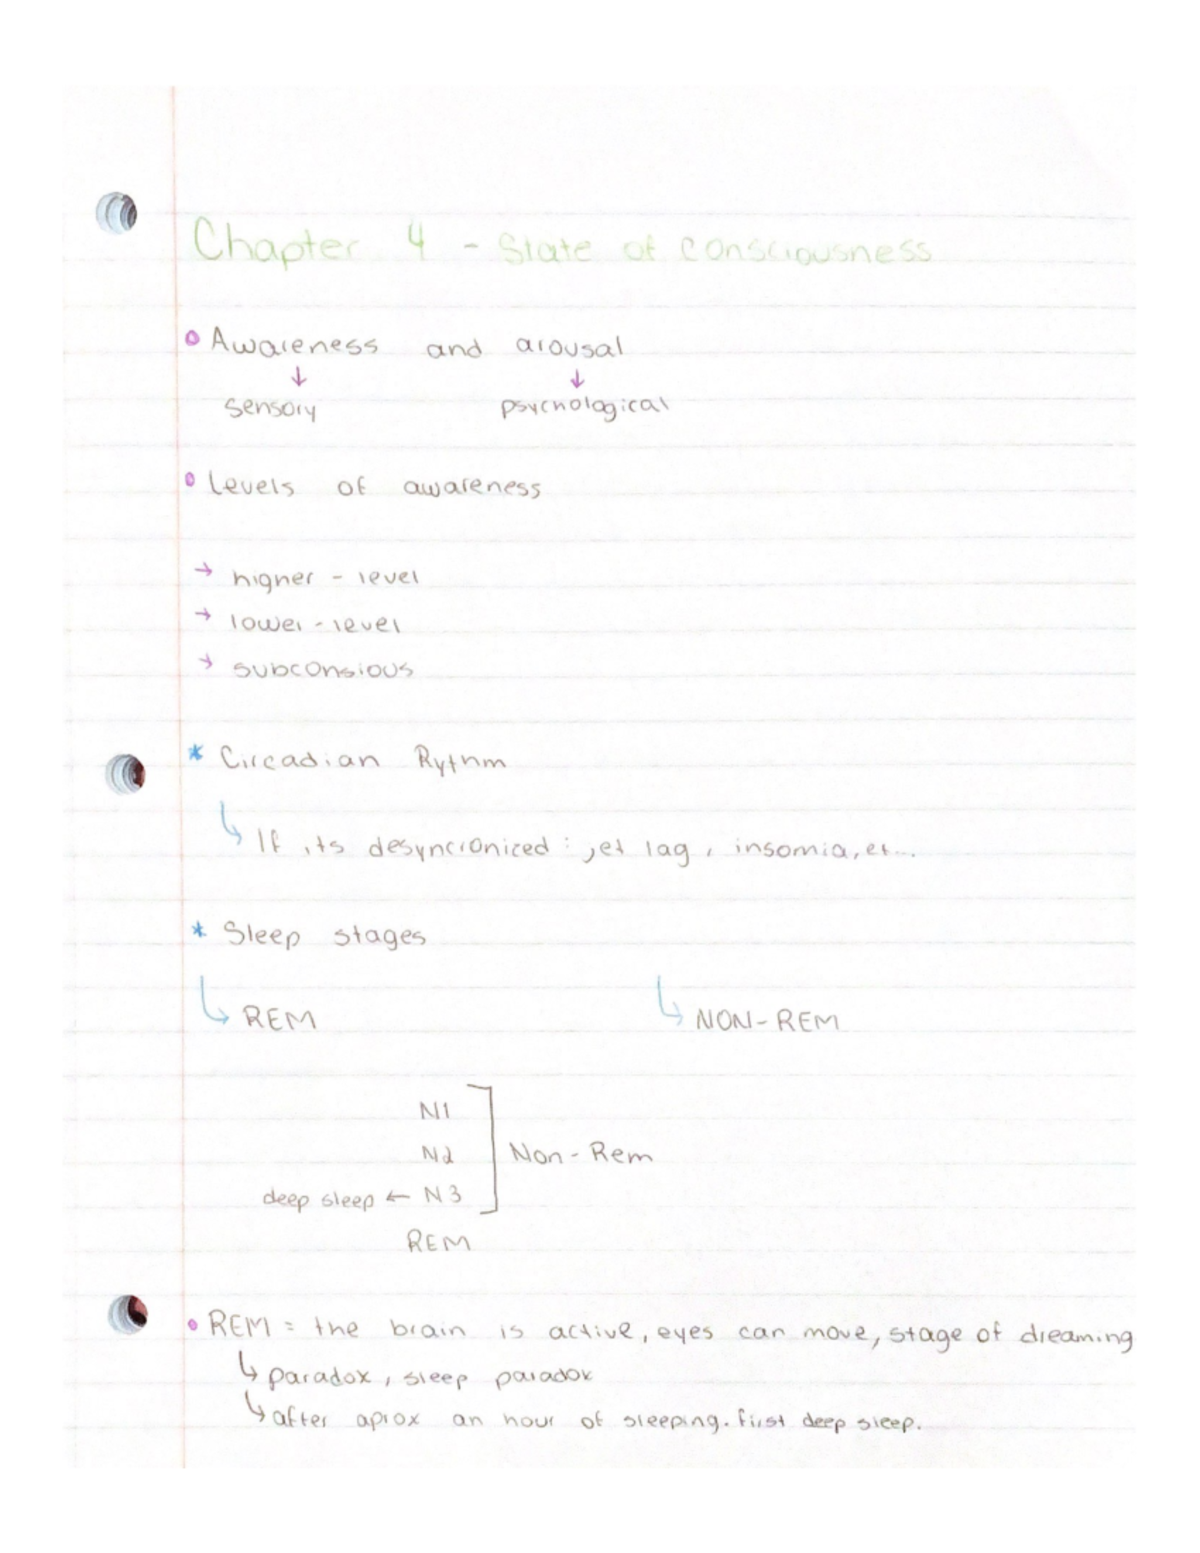 Chapter 4 - State of Consciousness
Awareness and arousal
↓ ↓
sensory psychological
Levels of awareness
→ higher - level
→ lower - level
→ subconsious
* Circadian Rythm
↳ If its desyncroniced : jet lag, insomia, et...
* Sleep stages
↳ REM ↳ NON-REM
N1
N2 Non-Rem
deep sleep ← N3
REM
• REM = the brain is active, eyes can move, stage of dreaming
↳ paradox, sleep paradox
↳ after aprox an hour of sleeping. first deep sleep.